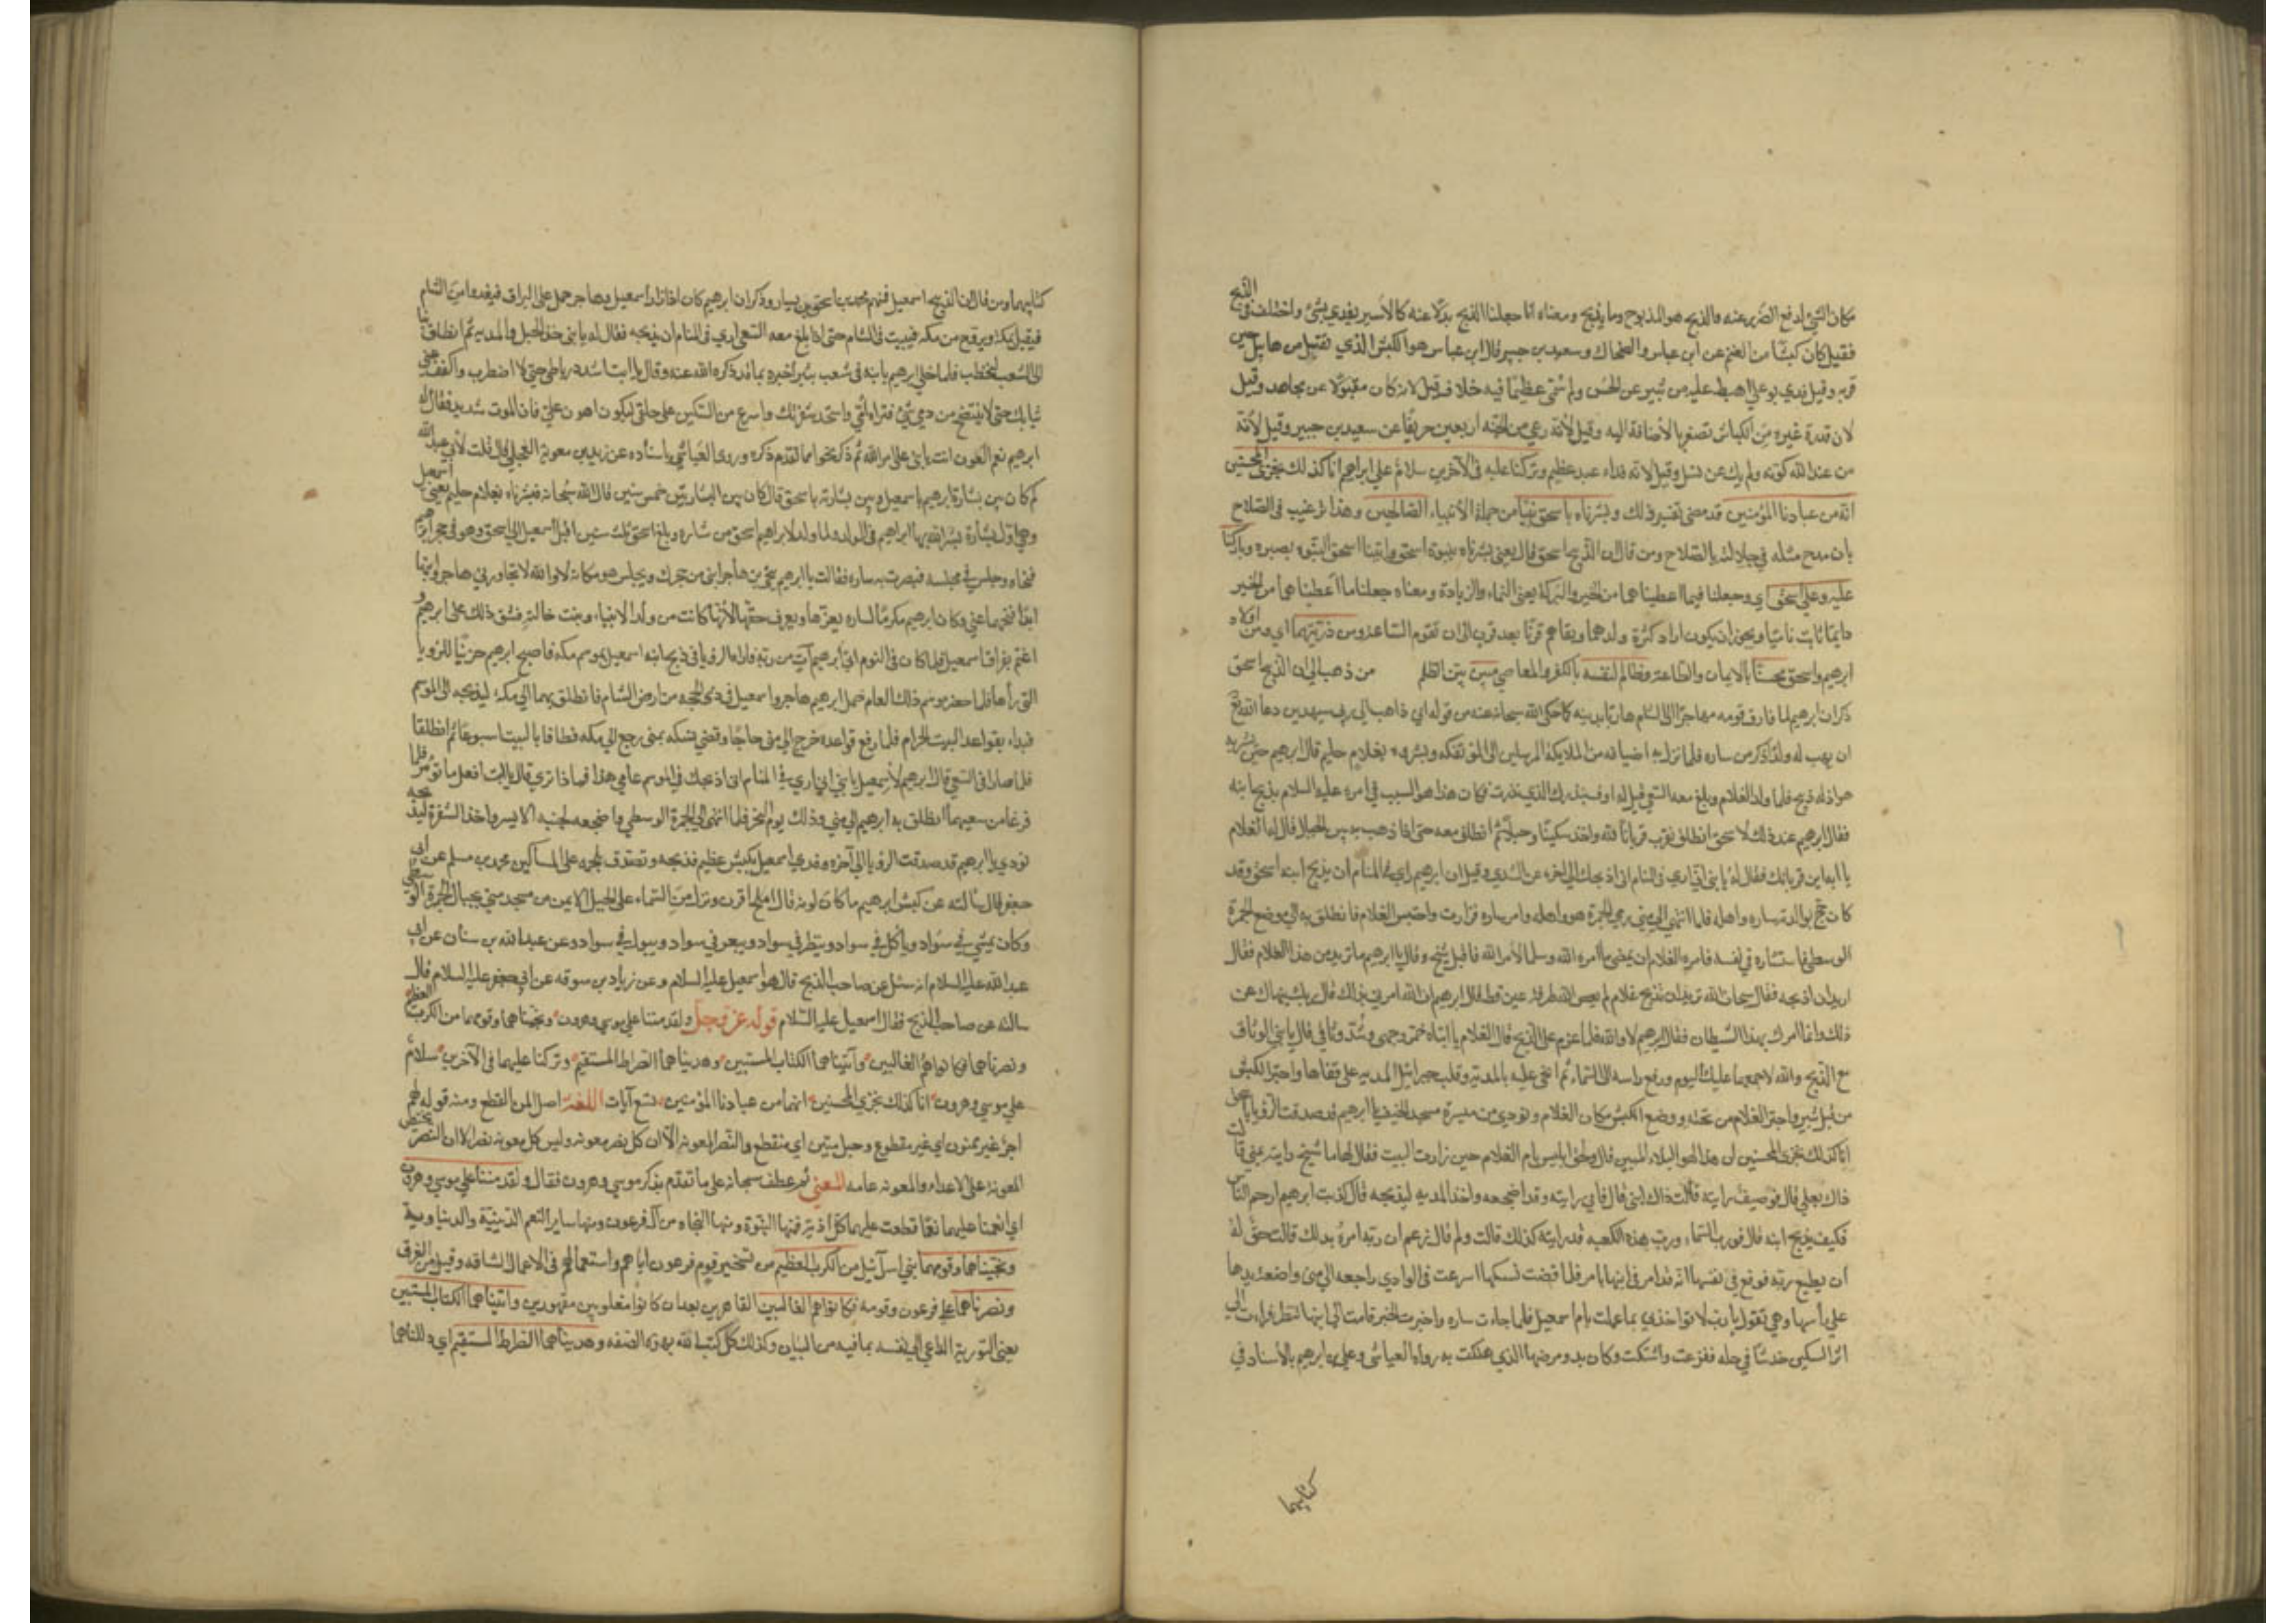 مكان الشيء لدفع الضرر عنه والذبح هو المذبوح وما يذبح ومعناه انا جعلنا الذبح بدلا عنه كالأسير يفدي بشئ واختلف في الذبح
فقيل كان كبشا من الغنم عن ابن عباس والضحاك وسعيد بن جبير قال ابن عباس هو الكبش الذي تقبل من هابيل حين
قربه وقيل فدي بوعل اهبط عليه من ثبير عن الحسن ولم سمي عظيما فيه خلاف قيل لانه كان مقبولا عن مجاهد وقيل
لان قدر غيره من الكباش تصغر بالأضافة اليه وقيل لأنه رعي من الجنة اربعين خريفا عن سعيد بن جبير وقيل لأنه
من عند الله كونه ولم يك عن نسل وقيل لانه فداء عبد عظيم وتركنا عليه في الآخرين سلام على ابراهيم انا كذلك نجزي المحسنين
انه من عبادنا المؤمنين قد مضى تفسير ذلك وبشرناه باسحق نبيا من جملة الأنبياء الصالحين وهذا ترغيب في الصلاح
بان مدح مثله في جلالته بالصلاح ومن قال ان الذبيح اسحق قال يعني بشرناه بنبوة اسحق واتينا اسحق النبوة بصبره وباركنا
عليه وعلى اسحق اي وجعلنا فيما اعطيناهما من الخير والبركة يعني النماء والزيادة ومعناه جعلنا ما اعطيناهما من الخير
دايما ثابتا ناميا ويجوز ان يكون اراد كثرة ولدهما وبقاءهم قرنا بعد قرن الى ان تقوم الساعة ومن ذريتهما اي ومن اولاد
ابرهيم واسحق محسن بالايمان والطاعة وظالم لنفسه بالكفر والمعاصي مبين بين الظلم من ذهب الى ان الذبيح اسحق
ذكر ان ابرهيم لما فارق قومه مهاجرا الى الشام هاربا بدينه كما حكى الله سبحانه عنه من قوله اني ذاهب الى ربي سيهدين دعا الله تع
ان يهب له ولدا ذكرا من ساره فلما نزل به اضيافه من الملايكة المرسلين الى المؤتفكه وبشروه بغلام حليم قال ابرهيم حين بشر به
هو اذا لله ذبيح فلما ولد الغلام وبلغ معه السعي قيل له اوف بنذرك الذي نذرت فكان هذا هو السبب في امره عليه السلام بذبح ابنه
فقال ابرهيم عند ذلك لاسحق انطلق نقرب قربانا لله واخذ سكينا وحبلا ثم انطلق معه حتى اذا ذهب به بين الجبال قال له الغلام
يا ابه اين قربانك فقال له يا بني اني اري في المنام اني اذبحك الى اخره عن السدي وقيل ان ابرهيم راى في المنام ان يذبح ابنه اسحق وقد
كان حج بوالدته ساره واهله فلما انتهى الى منى رمى الجمرة هو واهله وامر ساره فزارت واحتبس الغلام فانطلق به الى موضع الجمرة
الوسطى فاستشاره في نفسه فامره الغلام ان يمضي ما امره الله وسلما لأمر الله فاقبل شيخ وقال يا ابرهيم ما تريد من هذا الغلام فقال
اريد ان اذبحه فقال سبحان الله تريد ان تذبح غلاما لم يعص الله طرفة عين قط قال ابرهيم ان الله امرني بذلك قال ربك ينهاك عن
ذلك وانما امرك بهذا الشيطان فقال ابرهيم لا والله فلما عزم على الذبح قال الغلام يا ابتاه خمر وجهي وشد وثاقي قال يا بني الوثاق
مع الذبح والله لا اجمعهما عليك اليوم ورفع راسه الى السماء ثم انحنى عليه بالمدية وقلب جبرائيل المديه على قفاها واجتر الكبش
من قبل ثبير واجتر الغلام من تحته ووضع الكبش مكان الغلام ونودي من ميسرة مسجد الخيف يا ابرهيم قد صدقت الرؤيا باسحق
انا كذلك نجزي المحسنين ان هذا لهو البلاء المبين قال ولحق ابليس بام الغلام حين زارت البيت فقال لها ما شيخ رايته بمنى قالت
ذاك بعلي قال فوصيف رايته قالت ذاك ابني قال فاني رايته وقد اضجعه واخذ المديه ليذبحه قال كذبت ابرهيم ارحم الناس
فكيف يذبح ابنه قال فورب السماء ورب هذه الكعبه قد رايته كذلك قالت ولم قال زعم ان ربه امره بذلك قالت حق له
ان يطيع ربه فوقع في نفسها انه قد امر في ابنها بامر فلما قضت نسكها اسرعت في الوادي راجعه الى منى واضعة يدها
على راسها وهي تقول يا رب لا تؤاخذني بما عملت بام اسمعيل فلما جاءت ساره واخبرت الخبر قامت الى ابنها تنظر فرات الى
اثر السكين خدشا في حلقه ففزعت واشتكت وكان بدو مرضها الذي هلكت به رواه العياشي وعلي بن ابرهيم بالأسناد في
كتابيهما
كتابيهما ومن قال ان الذبيح اسمعيل فمنهم محمد بن اسحق بن يسار وذكر ان ابرهيم كان اذا زار اسمعيل وهاجر حمل على البراق فيغدوا من الشام
فيقيل بمكة ويروح من مكه فيبيت في الشام حتى اذا بلغ معه السعي اري في المنام ان يذبحه فقال له يا بني خذ الحبل والمدية ثم انطلق بنا
الى الشعب لنحتطب فلما خلى ابرهيم بابنه في شعب ثبير اخبره بما قد ذكره الله عنه وقال يا ابت اشدد رباطي حتى لا اضطرب واكفف عني
ثيابك حتى لا ينتضح من دمي شئ فتراه امي واستحد شفرتك واسرع من السكين على حلقي ليكون اهون علي فان الموت شديد فقال له
ابرهيم نعم العون انت يا بني على امر الله ثم ذكر نحوا مما تقدم ذكره وروى العياشي باسناده عن زيد بن معوية العجلي قال قلت لأبي عبد الله
كم كان بين بشارة ابرهيم باسمعيل وبين بشارته باسحق قال كان بين البشارتين خمس سنين قال الله سبحانه فبشرناه بغلام حليم يعني اسمعيل
وهي اول بشارة بشر الله بها ابراهيم في الولد ولما ولد لابراهيم اسحق من ساره وبلغ اسحق ثلث سنين اقبل اسمعيل الى اسحق وهو في حجر ابرهيم
فنحاه وجلس في مجلسه فبصرت به ساره فقالت يا ابرهيم ينحي بن هاجر ابني من حجرك ويجلس هو مكانه لا والله لا تجاورني هاجر وابنها
ابدا فنحهما عني وكان ابرهيم مكرما لساره يعزها ويعرف حقها لأنها كانت من ولد الانبياء وبنت خالته فشق ذلك على ابرهيم و
اغتم بفراق اسمعيل فلما كان في النوم اتى ابرهيم آت من ربه فاراه الرؤيا في ذبح ابنه اسمعيل بموسم مكه فاصبح ابرهيم حزينا للرؤيا
التي رأها فلما حضر موسم ذلك العام حمل ابرهيم هاجر واسمعيل في ذي الحجه من ارض الشام فانطلق بهما الى مكة ليذبحه الى الموسم
فبداء بقواعد البيت الحرام فلما رفع قواعده خرج الى منى حاجا وقضى نسكه بمنى رجع الى مكه فطافا بالبيت اسبوعا ثم انطلقا
فلما صارا في السعي قال ابرهيم لأسمعيل يا بني اني اري في المنام اني اذبحك في الموسم عامي هذا فماذا تري قال يا ابت افعل ما تؤمر فلما
فرغا من سعيهما انطلق به ابرهيم الى منى وذلك يوم النحر فلما انتهى الى الجمرة الوسطي واضجعه لجنبه الايسر واخذ الشفرة ليذبحه
نودي يا ابرهيم قد صدقت الرؤيا الى آخره وفدي اسمعيل بكبش عظيم فذبحه وتصدق بلحمه على المساكين محمد بن مسلم عن ابي
جعفر قال سالته عن كبش ابرهيم ما كان لونه قال املح اقرن ونزل من السماء على الجبل الايمن من مسجد منى بحيال الجمرة الوسطى
وكان يمشي في سواد وياكل في سواد وينظر في سواد ويبعر في سواد ويبول في سواد وعن عبد الله بن سنان عن ابي
عبد الله عليه السلام انه سئل عن صاحب الذبح قال هو اسمعيل عليه السلام وعن زياد بن سوقه عن ابي جعفر عليه السلام قال
سالته عن صاحب الذبح فقال اسمعيل عليه السلام قوله عز وجل ولقد مننا على موسى وهرون ونجيناهما وقومهما من الكرب العظيم
ونصرناهم فكانوا هم الغالبين وآتيناهما الكتاب المستبين وهديناهما الصراط المستقيم وتركنا عليهما في الآخرين سلام
على موسي وهرون انا كذلك نجزي المحسنين انهما من عبادنا المؤمنين تسع آيات اللغة اصل المن القطع ومنه قوله لهم
اجر غير ممنون اي غير مقطوع وحبل منين اي منقطع والنصر المعونه الا ان كل نصر معونه وليس كل معونه نصرا لان النصر يختص
المعونة على الاعداء والمعونه عامه المعنى ثم عطف سبحانه على ما تقدم بذكر موسى وهرون فقال ولقد مننا على موسى وهرون
اي انعمنا عليهما نعما قطعت عليهما كل اذية فمنها النبوة ومنها النجاه من آل فرعون ومنها ساير النعم الدينية والدنياوية
ونجيناهما وقومهما بني اسرآئيل من الكرب العظيم من تسخير قوم فرعون اياهم واستعمالهم في الاعمال الشاقه وقيل من الغرق
ونصرناهم على فرعون وقومه فكانوا هم الغالبين القاهرين بعد ان كانوا مغلوبين مقهورين واتيناهما الكتاب المستبين
يعني التورية الداعي الى نفسه بما فيه من البيان وكذلك كل كتب الله بهذه الصفه وهديناهما الصراط المستقيم اي دللناهما